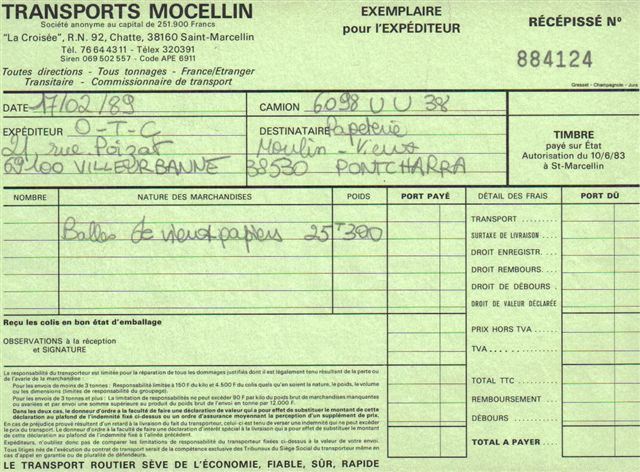 TRANSPORTS MOCELLIN
Société anonyme au capital de 251.900 Francs
"La Croisée", R.N. 92, Chatte, 38160 Saint-Marcellin
Tél. 76 64 43 11 - Télex 320391
Siren 069 502 557 - Code APE 6911
Toutes directions - Tous tonnages - France/Etranger
Transitaire - Commissionnaire de transport
EXEMPLAIRE
pour l'EXPÉDITEUR
RÉCÉPISSÉ N°
884124
Grasset - Champagnole - Jura
DATE 17/02/89
CAMION 6098 UU 38
EXPÉDITEUR O-T-C
21, rue Poizat
69100 VILLEURBANNE
DESTINATAIRE Papeterie
Moulin-Vieux
38530 PONTCHARRA
TIMBRE
payé sur État
Autorisation du 10/6/83
à St-Marcellin
NOMBRE NATURE DES MARCHANDISES POIDS PORT PAYÉ DÉTAIL DES FRAIS PORT DÛ
Balles de vieux papiers 25T300
TRANSPORT ........
SURTAXE DE LIVRAISON ....
DROIT ENREGISTR. ...
DROIT REMBOURS. ...
DROIT DE DÉBOURS .
DROIT DE VALEUR DÉCLARÉE
PRIX HORS TVA .....
TVA ...............
TOTAL TTC ........
REMBOURSEMENT ..
DÉBOURS .........
TOTAL A PAYER ...
Reçu les colis en bon état d'emballage
OBSERVATIONS à la réception
et SIGNATURE
La responsabilité du transporteur est limitée pour la réparation de tous les dommages justifiés dont il est légalement tenu résultant de la perte ou
de l'avarie de la marchandise :
Pour les envois de moins de 3 tonnes : Responsabilité limitée à 150 F du kilo et 4.500 F du colis quels qu'en soient la nature, le poids, le volume
ou les dimensions (limites de responsabilité du groupage).
Pour les envois de 3 tonnes et plus : La limitation de responsabilité ne peut excéder 90 F par kilo du poids brut de marchandises manquantes
ou avariées et par envoi une somme supérieure au produit du poids brut de l'envoi en tonne par 12.000 F.
Dans les deux cas, le donneur d'ordre a la faculté de faire une déclaration de valeur qui a pour effet de substituer le montant de cette
déclaration au plafond de l'indemnité fixé ci-dessus ou un ordre d'assurance moyennant la perception d'un supplément de prix.
En cas de préjudice prouvé résultant d'un retard à la livraison du fait du transporteur, celui-ci est tenu de verser une indemnité qui ne peut excéder
le prix du transport. Le donneur d'ordre a la faculté de faire une déclaration d'intérêt spécial à la livraison qui a pour effet de substituer le montant
de cette déclaration au plafond de l'indemnité fixée à l'alinéa précédent.
Expéditeurs, n'oubliez donc pas de comparer les limitations de responsabilité du transporteur fixées ci-dessus à la valeur de votre envoi.
Tous litiges nés de l'exécution du contrat de transport serait de la compétence exclusive des Tribunaux du Siège Social du transporteur même en
cas d'appel en garantie ou de pluralité de défendeurs.
LE TRANSPORT ROUTIER SÈVE DE L'ÉCONOMIE, FIABLE, SÛR, RAPIDE